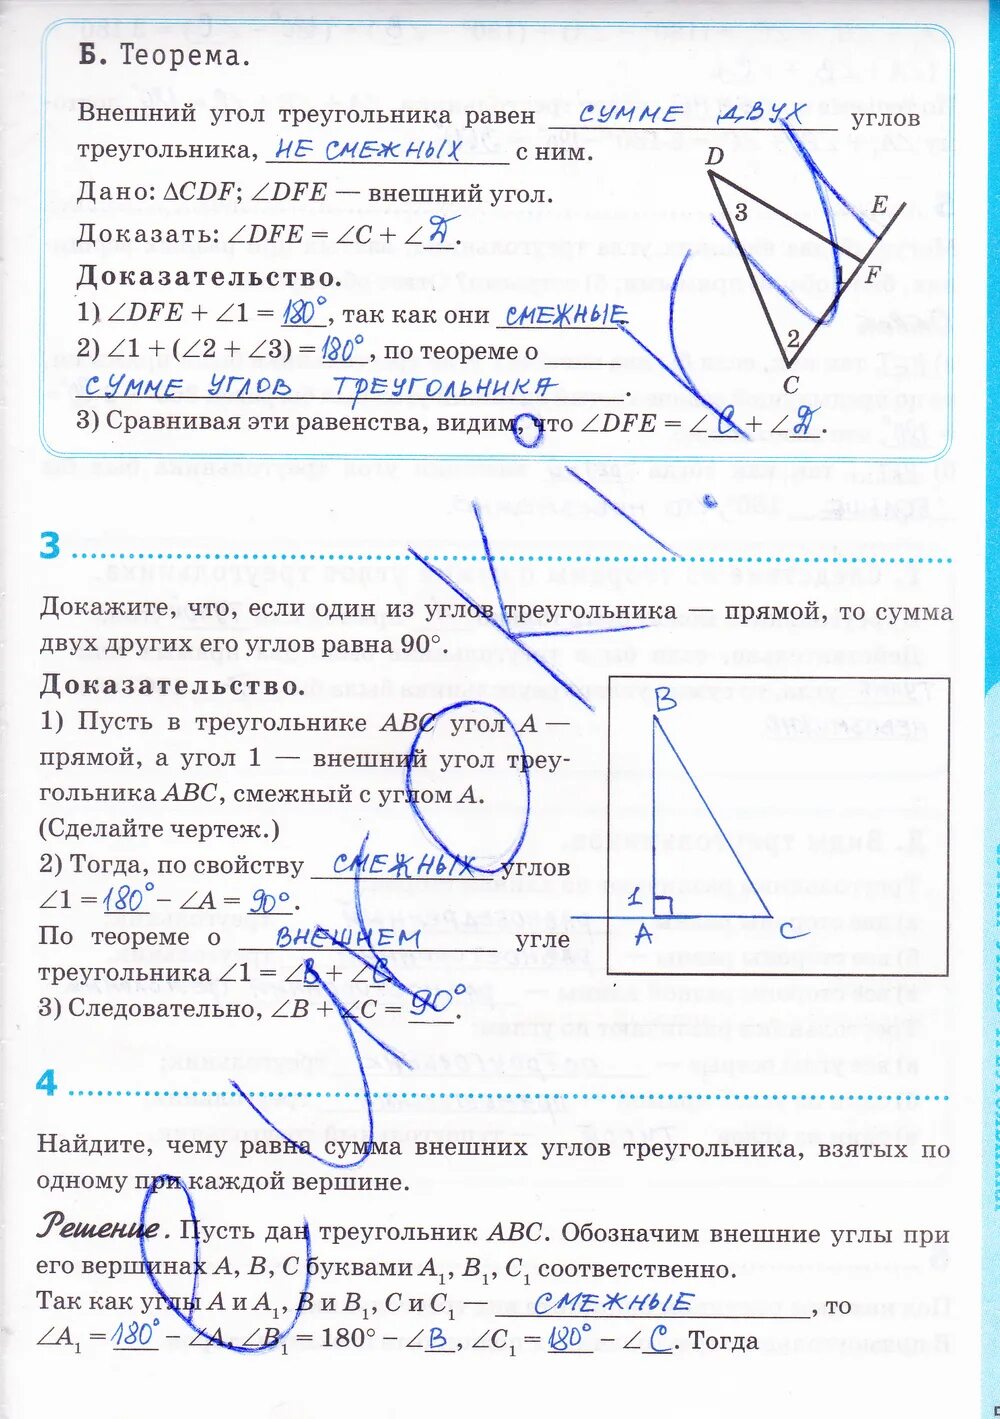 Б. Теорема.
Внешний угол треугольника равен СУММЕ ДВУХ углов
треугольника, НЕ СМЕЖНЫХ с ним.
Дано: ΔCDF; ∠DFE — внешний угол.
Доказать: ∠DFE = ∠C + ∠Д.
Доказательство.
1) ∠DFE + ∠1 = 180°, так как они СМЕЖНЫЕ
2) ∠1 + (∠2 + ∠3) = 180°, по теореме о
СУММЕ УГЛОВ ТРЕУГОЛЬНИКА.
3) Сравнивая эти равенства, видим, что ∠DFE = ∠C + ∠Д.
D
3
E
1
F
2
C
3
Докажите, что, если один из углов треугольника — прямой, то сумма
двух других его углов равна 90°.
Доказательство.
1) Пусть в треугольнике ABC угол A —
прямой, а угол 1 — внешний угол треу-
гольника ABC, смежный с углом A.
(Сделайте чертеж.)
2) Тогда, по свойству СМЕЖНЫХ углов
∠1 = 180° − ∠A = 90°.
По теореме о ВНЕШНЕМ угле
треугольника ∠1 = ∠B + ∠C.
3) Следовательно, ∠B + ∠C = 90°.
B
1
A
C
4
Найдите, чему равна сумма внешних углов треугольника, взятых по
одному при каждой вершине.
Решение. Пусть дан треугольник ABC. Обозначим внешние углы при
его вершинах A, B, C буквами A₁, B₁, C₁ соответственно.
Так как углы A и A₁, B и B₁, C и C₁ СМЕЖНЫЕ, то
∠A₁ = 180° − ∠A, ∠B₁ = 180° − ∠B, ∠C₁ = 180° − ∠C. Тогда